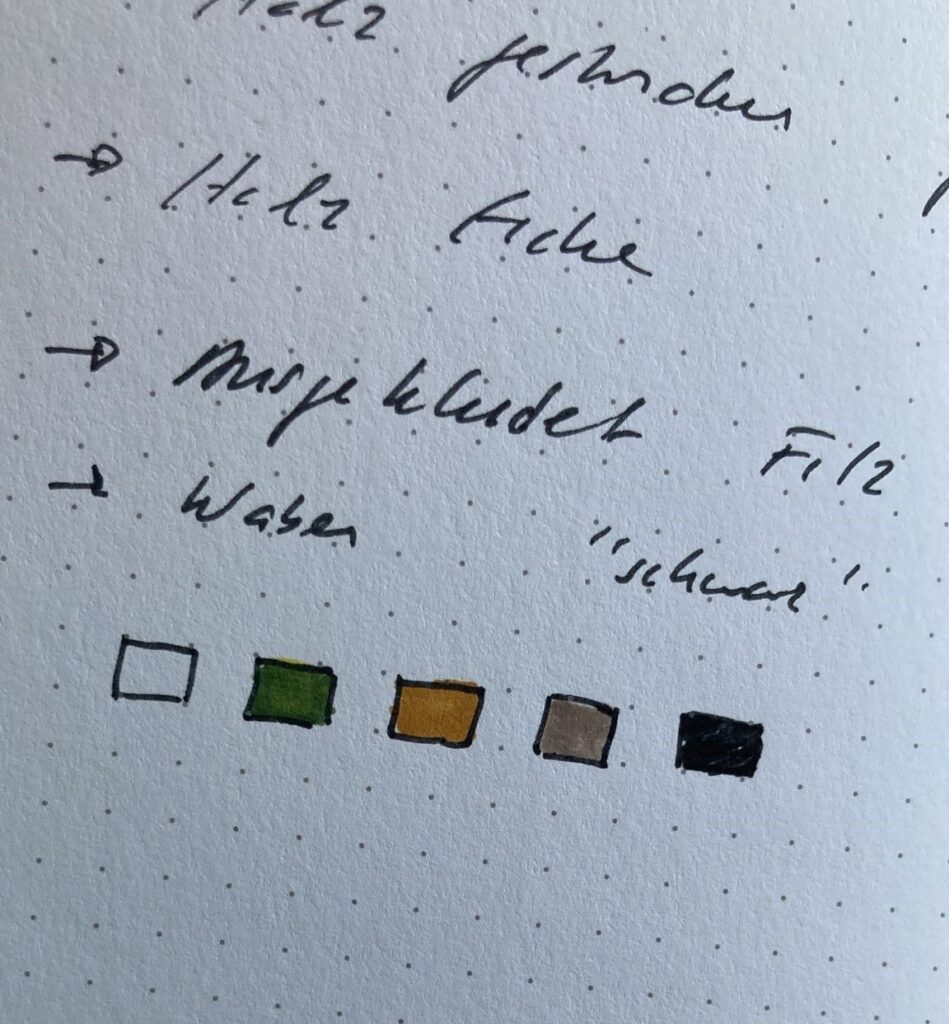 Holz
→ Holz Eiche
→ Ausgekleidet Filz
→ Waben "schwarz"